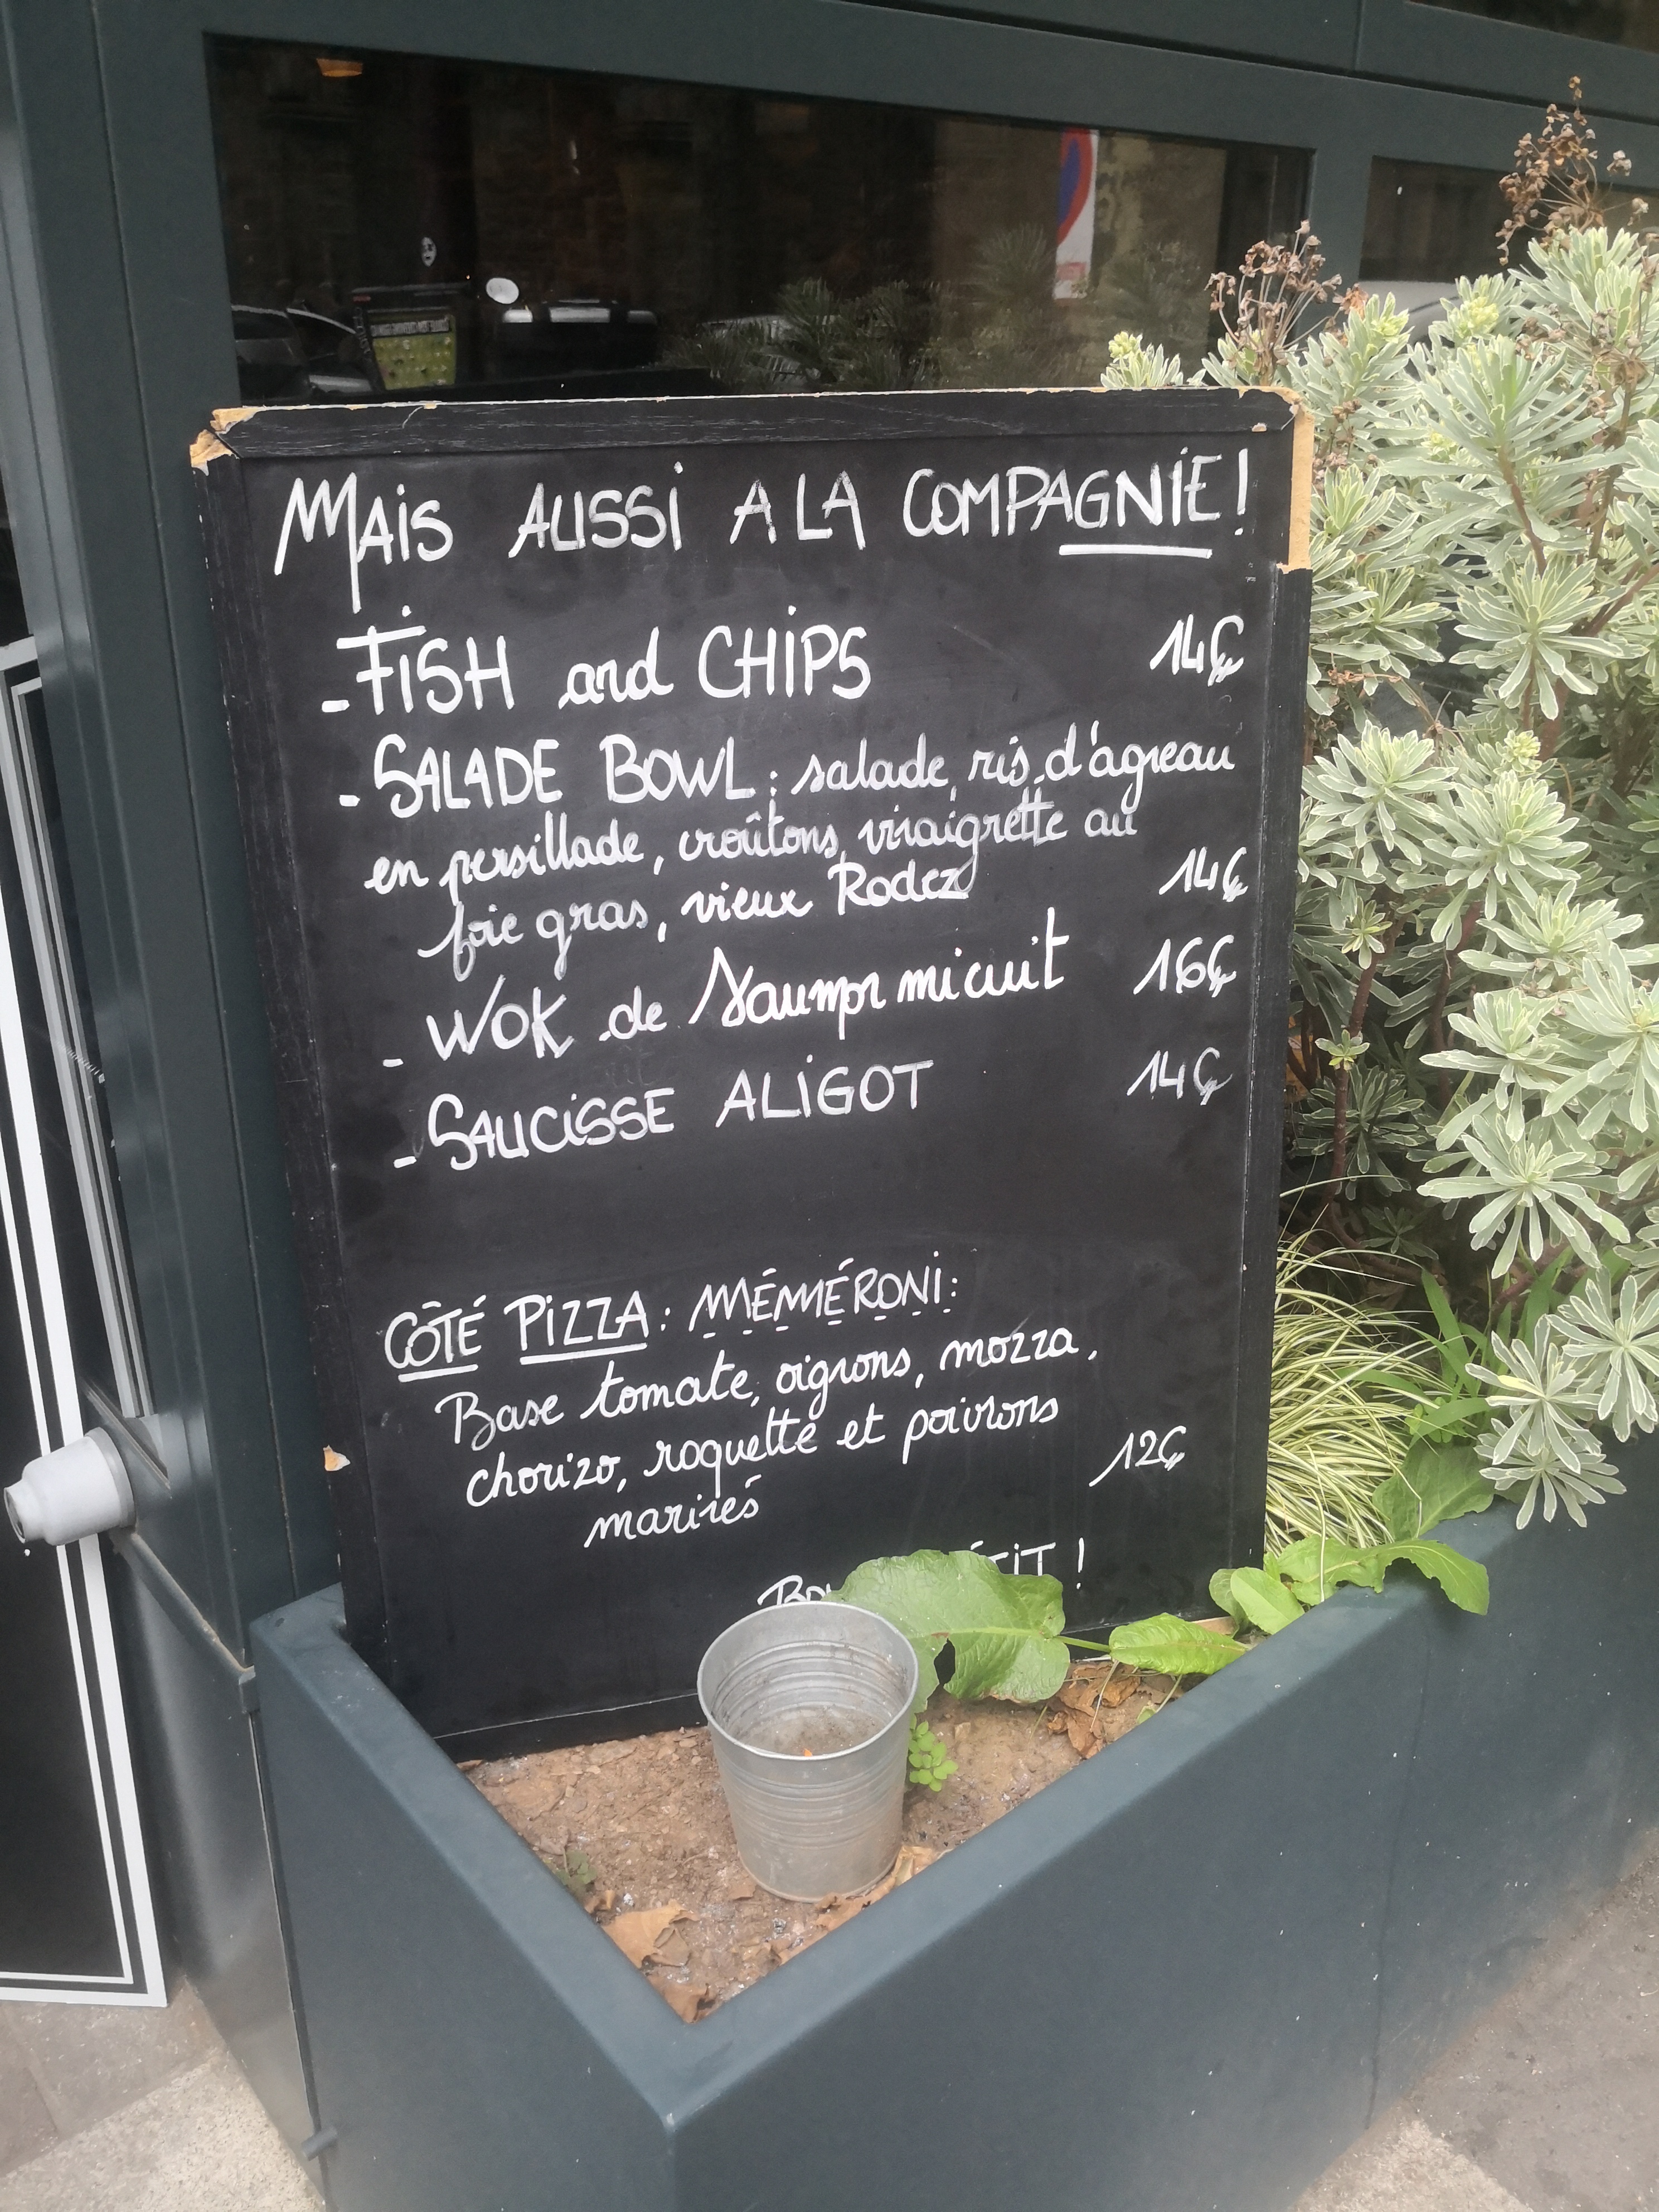 MAIS AUSSI A LA COMPAGNIE !
- FISH and CHIPS 14€
- SALADE BOWL : salade, ris d'agneau
en persillade, croûtons, vinaigrette au
foie gras, vieux Rodez 14€
- WOK de Saumon mi cuit 16€
- SAUCISSE ALIGOT 14€
CÔTÉ PIZZA : MÉMMÉRONI :
Base tomate, oignons, mozza,
chorizo, roquette et poivrons
marinés 12€